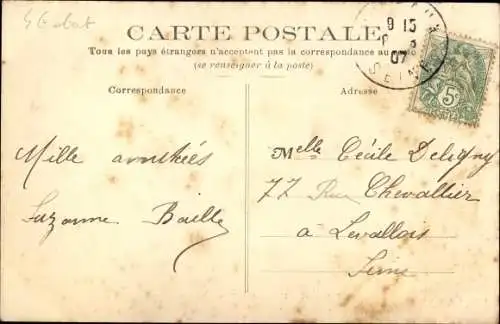 CARTE POSTALE
Tous les pays étrangers n'acceptent pas la correspondance au
(se renseigner à la poste)
9 15
07
SEINE
5
Correspondance
Adresse
Mille amitiés
Suzanne Bailly
Melle Cécile Deligny
77 Rue Chevallier
à Levallois
Seine